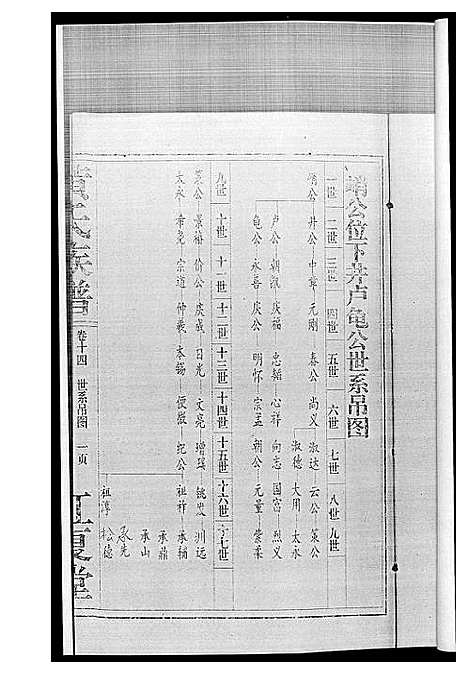 公位下井卢龟公世系吊图
一世 二世 三世 四世 五世 六世 七世 八世 九世
公 井公 中章 元刚 泰公 尚义 淑达 云公 策公
淑德 大用 太永
卢公 朝 庆福 忠 心祥 向志 国富 烈义
龟公 永喜 庆公 明怀 宗孟 朝公 元量 荣柔
九世 十世 十一世 十二世 十三世 十四世 十五世 十六世 十七世
策公 景梅 俞公 庆成 日光 文亮 增琚 毓发 洲远
太永 希尧 宗道 仲義 本锡 便 纪公 祖祥 承辅
承鼎
承山
承先
祖淳 松德
氏族谱
卷十四 世系吊图 一页
江夏堂